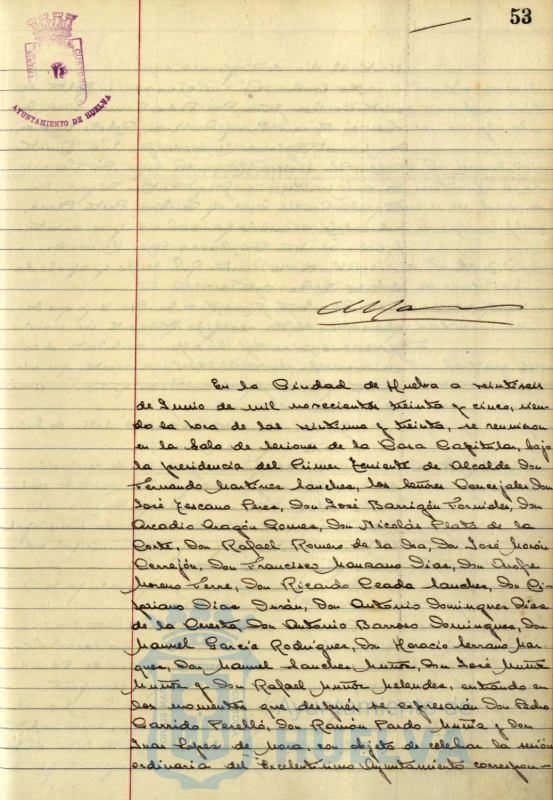 53
AYUNTAMIENTO DE HUELVA
En la Ciudad de Huelva a veintiseis
de Junio de mil novecientos treinta y cinco, sien-
do la hora de las veintiuna y treinta, se reunieron
en la Sala de Sesiones de la Casa Capitular, bajo
la presidencia del Primer Teniente de Alcalde Don
Fernando Martinez Sanchez, los Señores Concejales Don
José Toscano Perez, Don José Barrigón Fornieles, Don
Arcadio Aragón Gomez, Don Nicolás Plata de la
Corte, Don Rafael Romero de la Osa, Don José Morón
Cerrejón, Don Francisco Manzano Dias, Don Onofre
Moreno Ferre, Don Ricardo Ceada Sanchez, Don Ci-
priano Dias Durán, Don Antonio Dominguez Dias
de la Cuesta, Don Antonio Barroso Dominguez, Don
Manuel García Rodríguez, Don Horacio Serrano Mar-
quez, Don Manuel Sanchez Muñoz, Don José Muñiz
Muñoz y Don Rafael Muñoz Melendez, entrando en
los momentos que después se expresarán Don Pedro
Garrido Perelló, Don Ramón Pardo Muñiz y Don
Juan Lopez de Mora, con objeto de celebrar la sesión
ordinaria del Excelentisimo Ayuntamiento correspon-
HUELVA